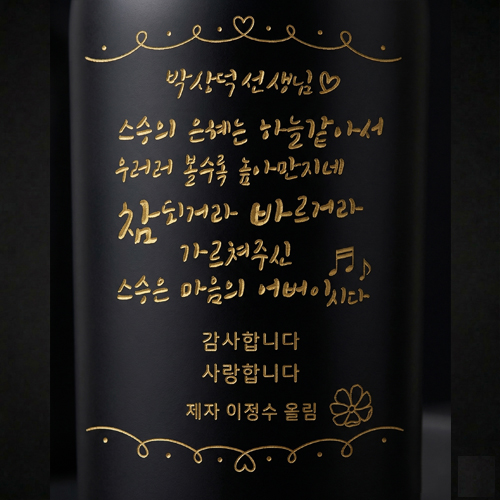 박상덕 선생님♡
스승의 은혜는 하늘같아서
우러러 볼수록 높아만지네
참되거라 바르거라
가르쳐주신
스승은 마음의 어버이시다
감사합니다
사랑합니다
제자 이정수 올림